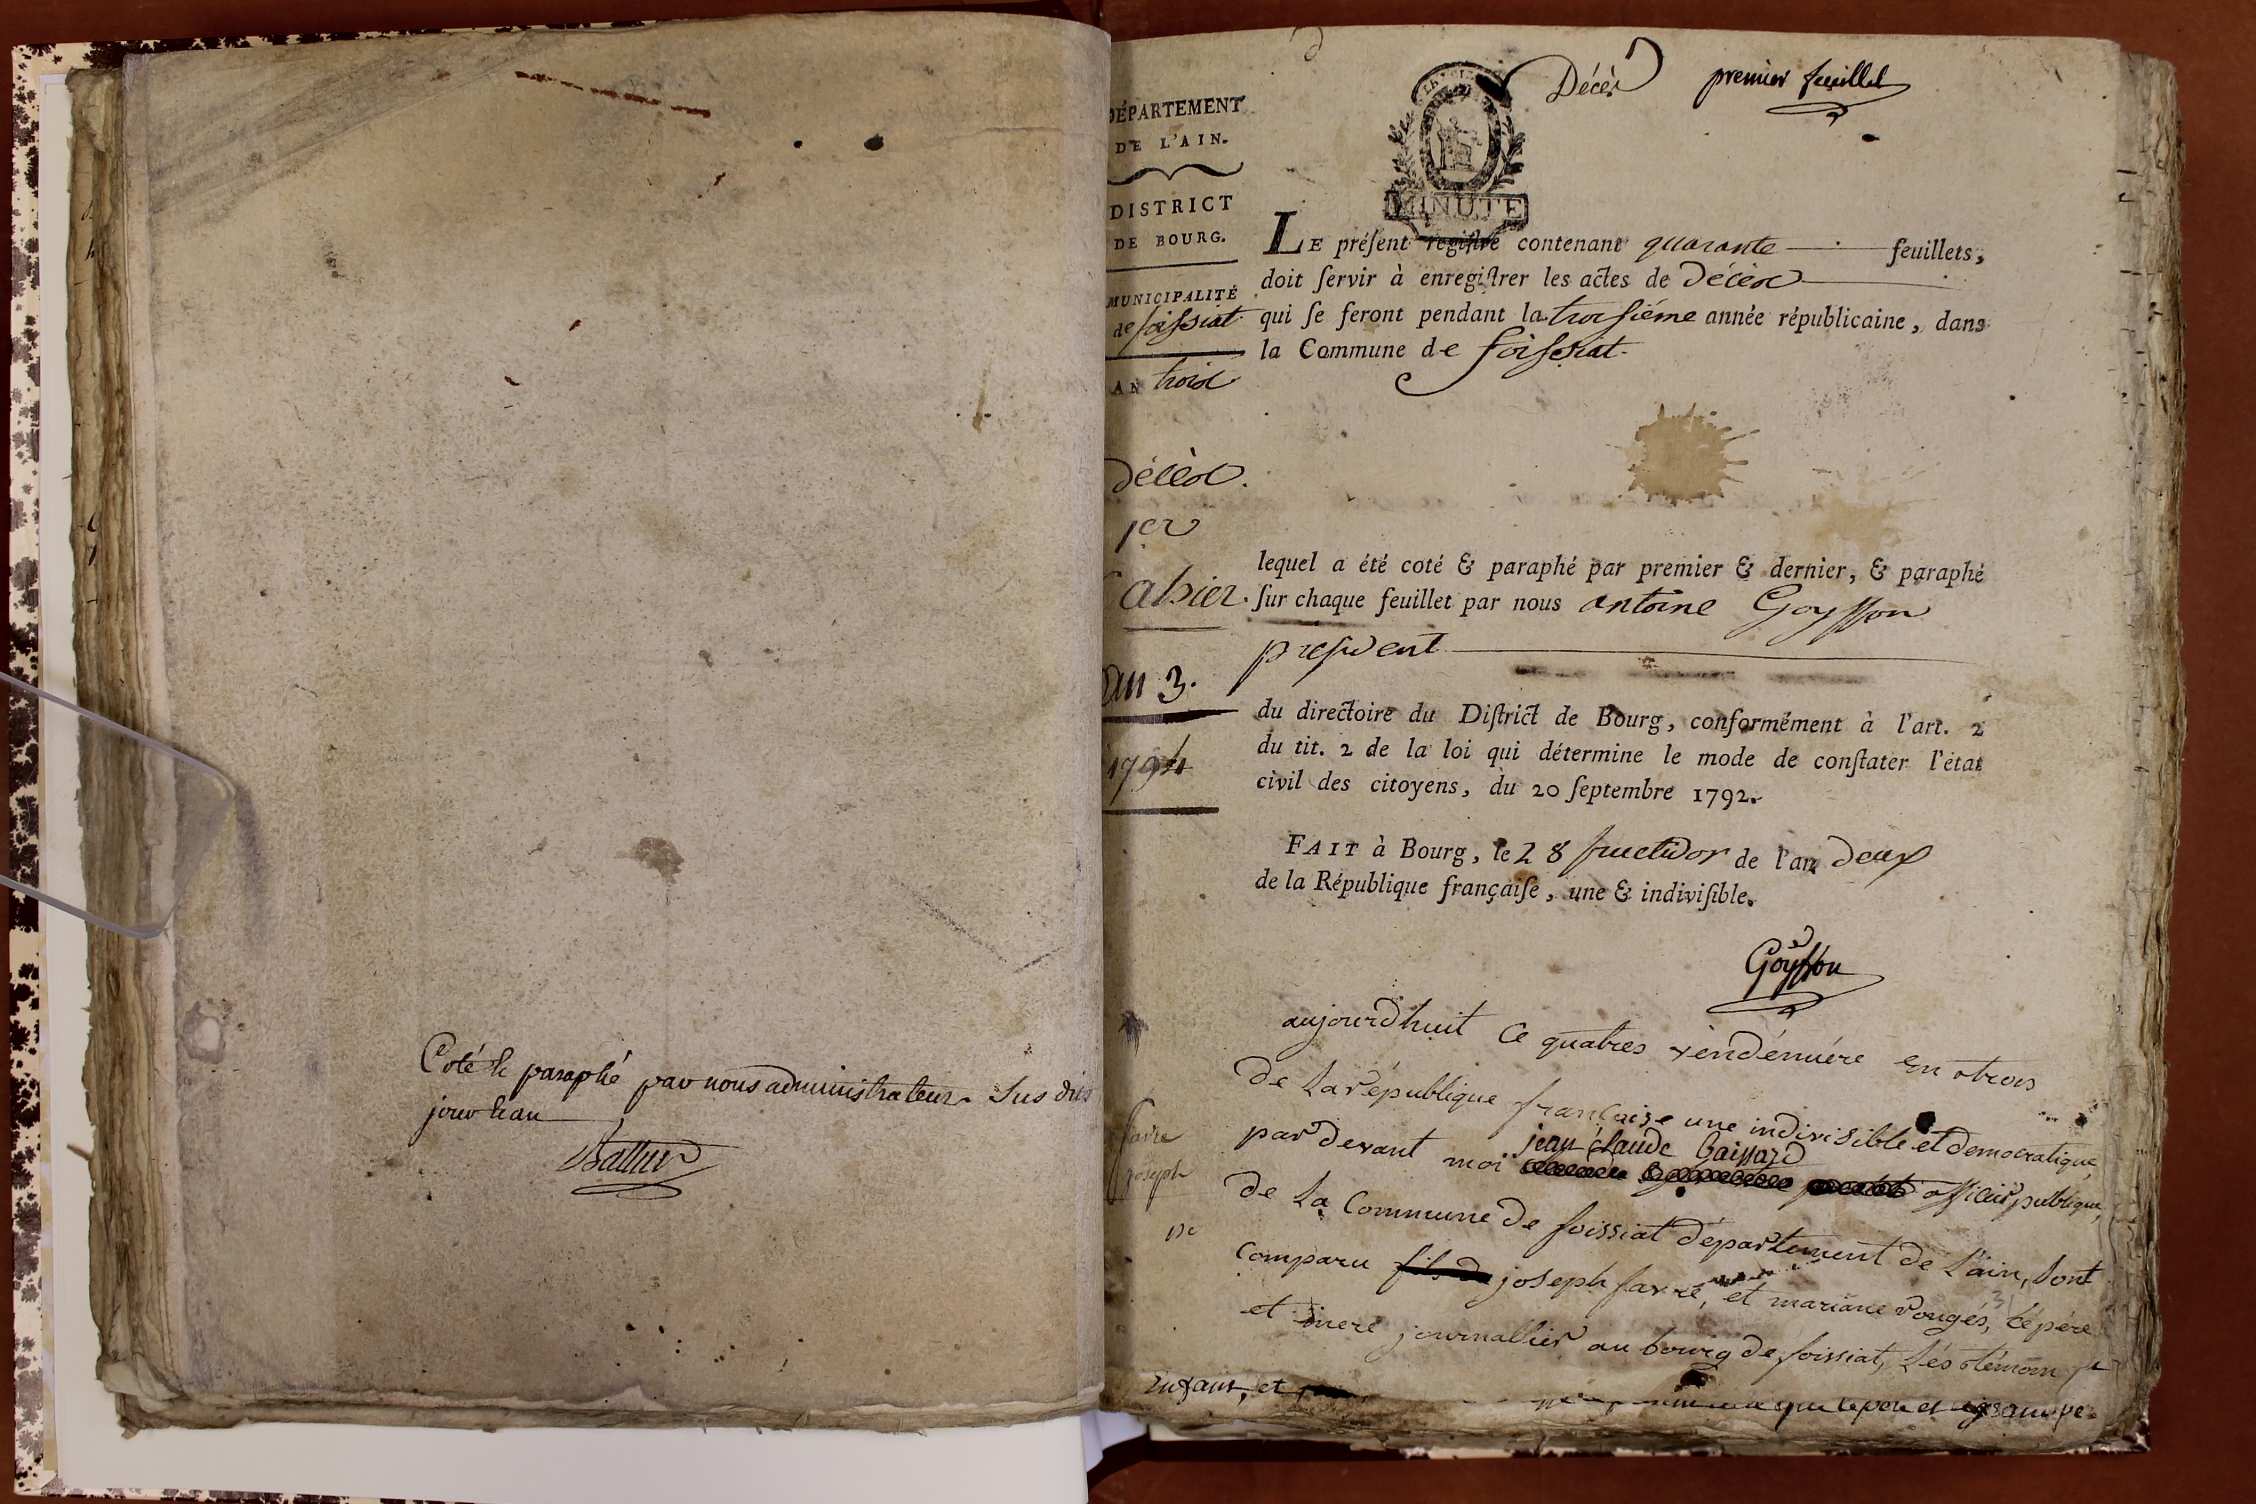 Coté & paraphé par nous administrateur sus dits
jour & an
Décès premier feuillet
MINUTE
DÉPARTEMENT
DE L'AIN.
DISTRICT
DE BOURG.
MUNICIPALITÉ
de foissiat
AN trois
décès.
1er
Cahier.
an 3.
1794
LE préſent regiſtre contenant quarante feuillets,
doit ſervir à enregiſtrer les actes de décès
qui ſe feront pendant la troisiéme année républicaine, dans
la Commune de foissiat.
lequel a été coté & paraphé par premier & dernier, & paraphé
ſur chaque feuillet par nous antoine Goyffon
président
du directoire du Diſtrict de Bourg, conformément à l'art. 2
du tit. 2 de la loi qui détermine le mode de conſtater l'état
civil des citoyens, du 20 ſeptembre 1792.
FAIT à Bourg, le 28 fructidor de l'an deux
de la République françaiſe, une & indiviſible.
Goyffon
favre
joseph
aujourdhuit ce quatres vendémiére en trois
de La république francaise une indivisible et democratique,
par devant moi jean claude officier publique,
de La Commune de foissiat département de L'ain, sont
comparu joseph favre, et mariane Pougés, Lépére
et mere journallier au bourg de foissiat, Lés témoin
Enfant, et que le pere et